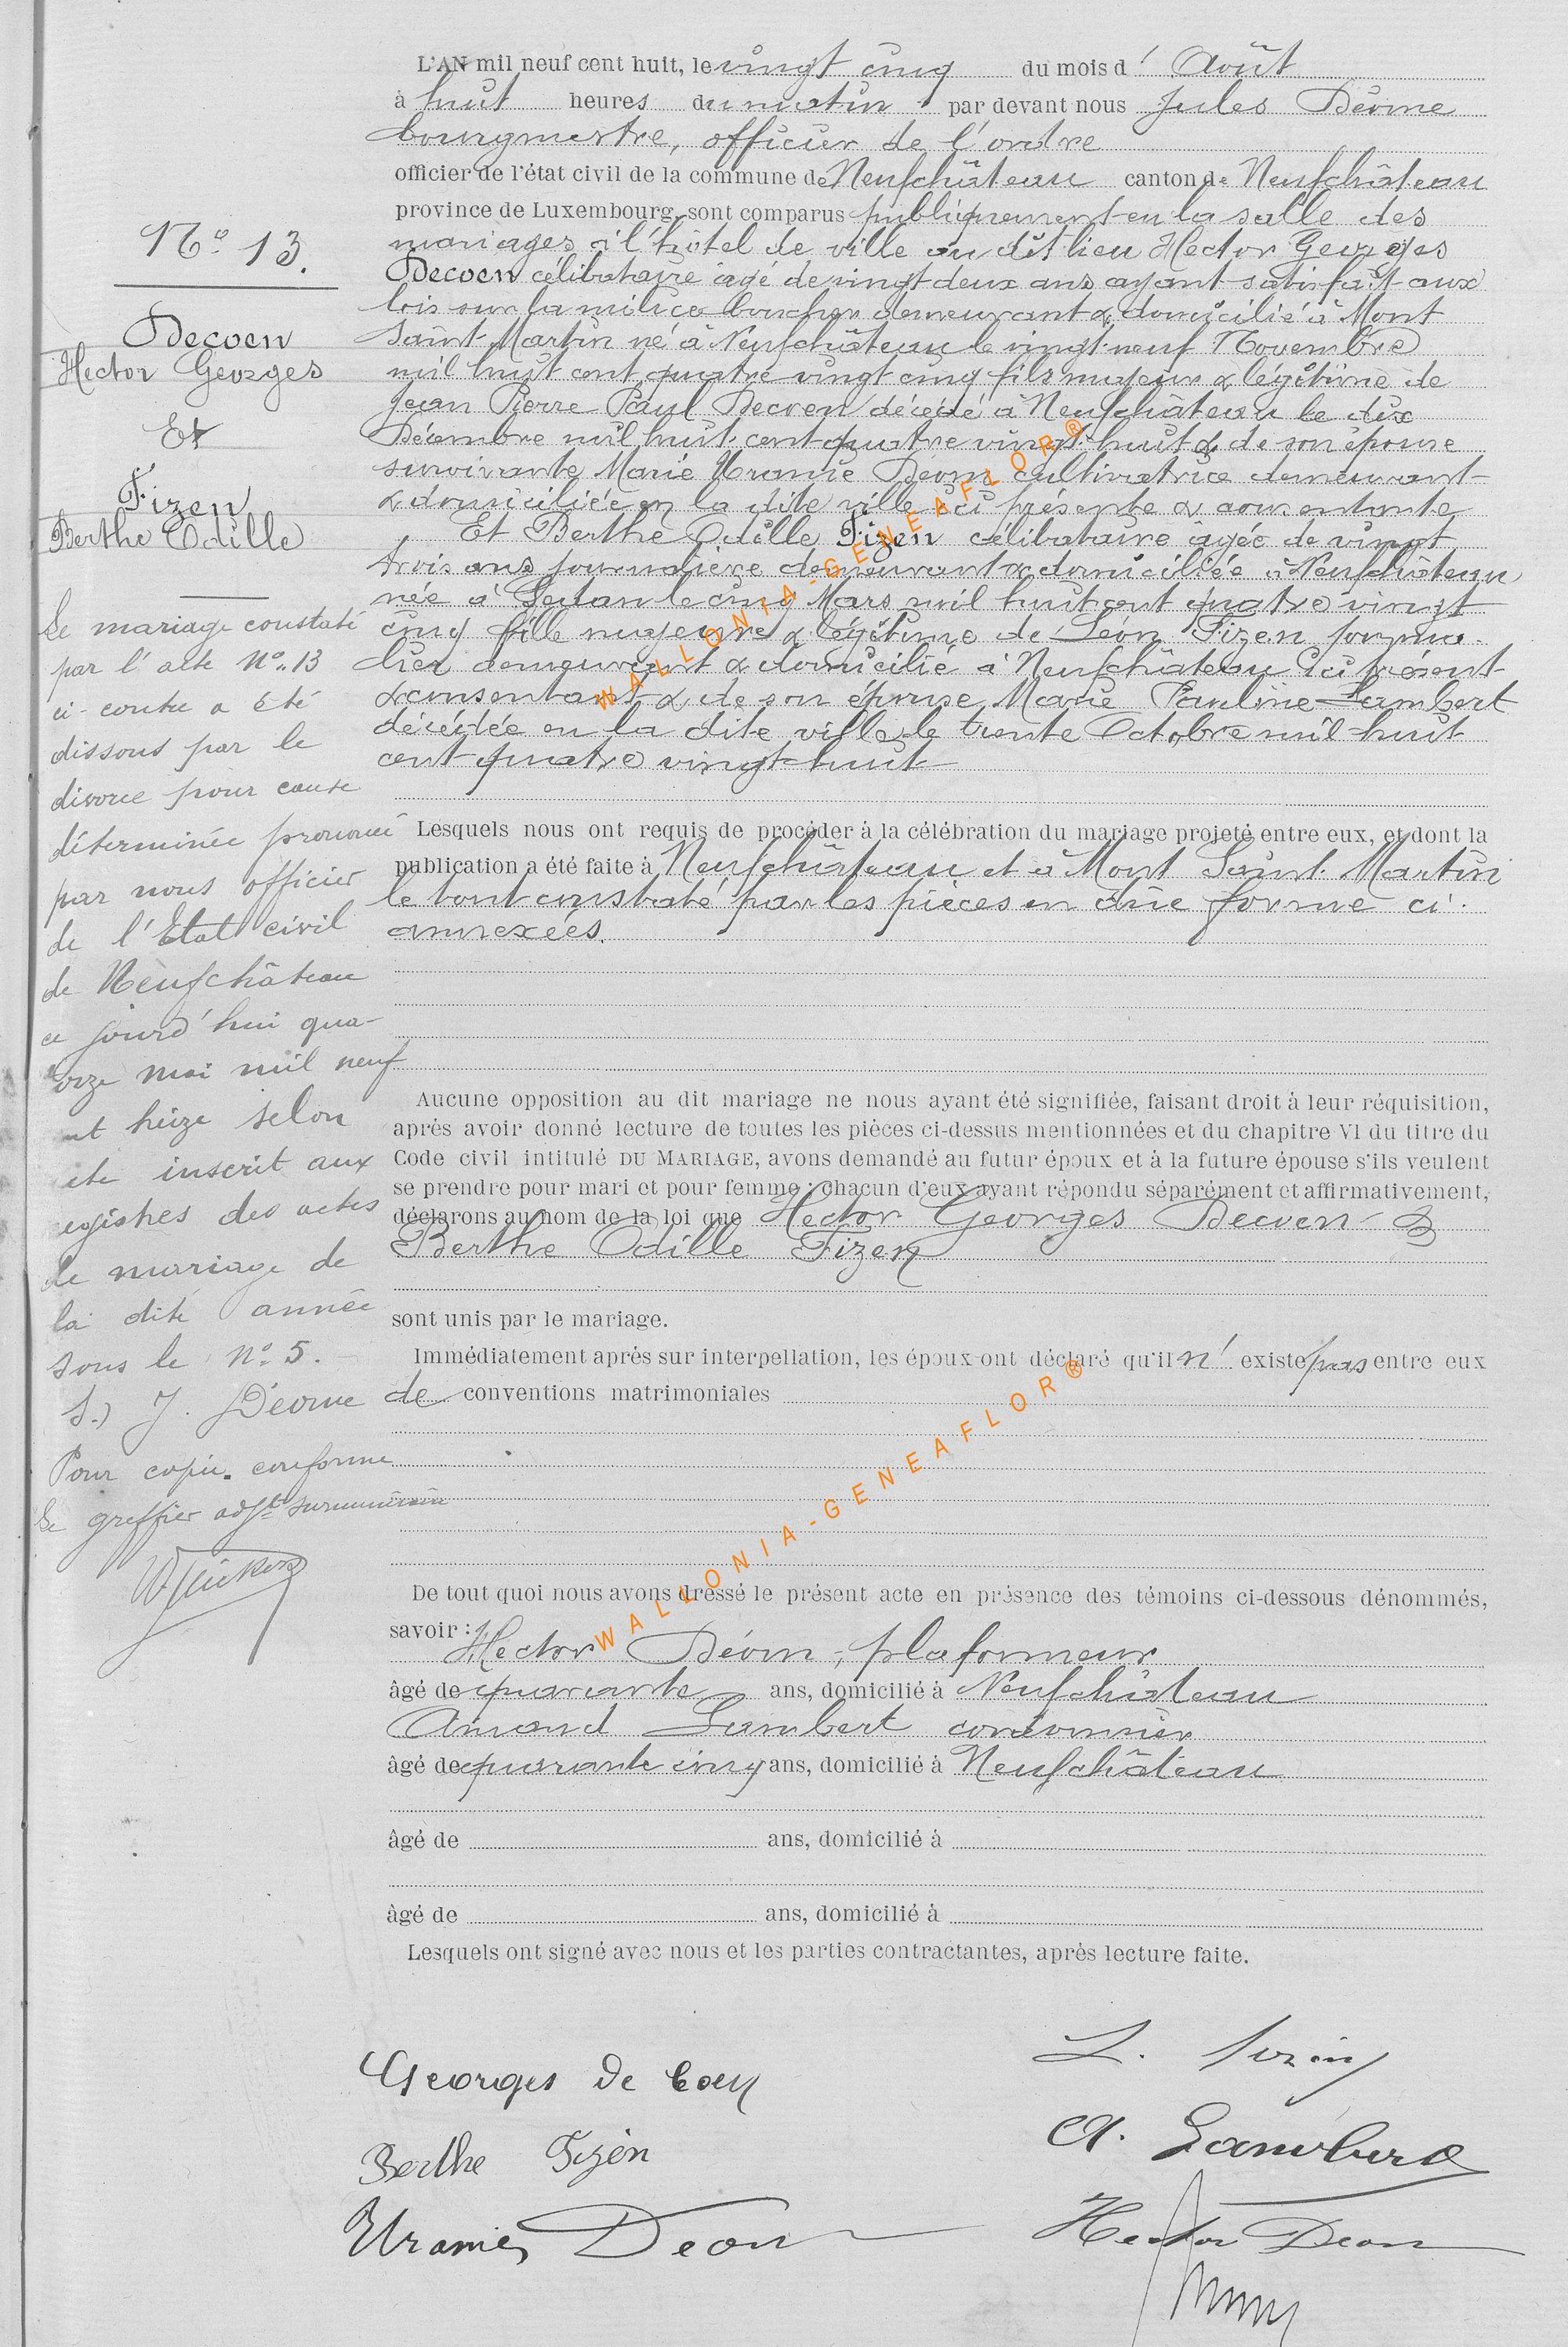 L'AN mil neuf cent huit, le vingt cinq du mois d' Août
à huit heures du matin par devant nous Jules Déome
bourgmestre, officier de l'ordre
officier de l'état civil de la commune de Neufchâteau canton de Neufchâteau
province de Luxembourg, sont comparus publiquement en la salle des
mariages à l'hôtel de ville au dit lieu Hector Georges
Decoen célibataire âgé de vingt deux ans ayant satisfait aux
lois sur la milice boucher demeurant & domicilié à Mont
Saint-Martin né à Neufchâteau le vingt-neuf Novembre
mil huit cent quatre vingt cinq fils majeur & légitime de
Jean Pierre Paul Decoen décédé à Neufchâteau le dix
Décembre mil huit cent quatre vingt huit & de son épouse
survivante Marie Uranie Déom cultivatrice demeurant
& domiciliée en la dite ville ici présente & consentante
Et Berthe Odille Fizen célibataire âgée de vingt
trois ans journalière demeurant & domiciliée à Neufchâteau
née à Sedan le cinq Mars mil huit cent quatre vingt
cinq fille majeure & légitime de Léon Fizen journa-
lier demeurant & domicilié à Neufchâteau ici présent
& consentant & de son épouse Marie Pauline Lambert
décédée en la dite ville le trente Octobre mil huit
cent quatre vingt huit
Lesquels nous ont requis de procéder à la célébration du mariage projeté entre eux, et dont la
publication a été faite à Neufchâteau et à Mont Saint-Martin
le tout constaté par les pièces en due forme ci-
annexées.
Aucune opposition au dit mariage ne nous ayant été signifiée, faisant droit à leur réquisition,
après avoir donné lecture de toutes les pièces ci-dessus mentionnées et du chapitre VI du titre du
Code civil intitulé DU MARIAGE, avons demandé au futur époux et à la future épouse s'ils veulent
se prendre pour mari et pour femme ; chacun d'eux ayant répondu séparément et affirmativement,
déclarons au nom de la loi que Hector Georges Decoen &
Berthe Odille Fizen
sont unis par le mariage.
Immédiatement après sur interpellation, les époux ont déclaré qu'il n' existe pas entre eux
de conventions matrimoniales
De tout quoi nous avons dressé le présent acte en présence des témoins ci-dessous dénommés,
savoir :
Hector Déom, plafonneur
âgé de quarante ans, domicilié à Neufchâteau
Amand Lambert cordonnier
âgé de quarante cinq ans, domicilié à Neufchâteau
âgé de ans, domicilié à
âgé de ans, domicilié à
Lesquels ont signé avec nous et les parties contractantes, après lecture faite.
Georges De Coen
Berthe Fizen
Uranie Deom
L. Fizen
A. Lambert
Hector Deom
N° 13.
Decoen
Hector Georges
Et
Fizen
Berthe Odille
Le mariage constaté
par l'acte N°. 13
ci-contre a été
dissous par le
divorce pour cause
déterminée prononcé
par nous officier
de l'Etat civil
de Neufchâteau
ce jourd'hui qua-
orze mai mil neuf
nt treize selon
cte inscrit aux
egistres des actes
de mariage de
la dite année
sous le N° 5.
S.) J. Déome
Pour copie conforme
Le greffier adjt surnuméraire
WALLONIA-GENEAFLOR®
WALLONIA-GENEAFLOR®